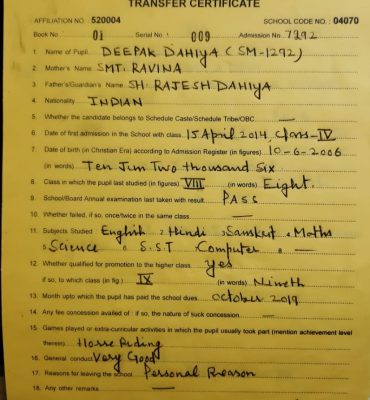 TRANSFER CERTIFICATE
AFFILIATION NO. 520004 SCHOOL CODE NO. : 04070
Book No 01 Serial No. 009 Admission No. 7292
1. Name of Pupil DEEPAK DAHIYA (SM-1292)
2. Mother's Name SMT. RAVINA
3. Father's/Guardian's Name SH. RAJESH DAHIYA
4. Nationality INDIAN
5. Whether the candidate belongs to Schedule Caste/Schedule Tribe/OBC —
6. Date of first admission in the School with class 15 April 2014 Class-IV
7. Date of birth (in Christian Era) according to Admission Register (in figures) 10-6-2006
(in words) Ten Jun Two thousand Six
8. Class in which the pupil last studied (in figures) VIII (in words) Eight.
9. School/Board Annual examination last taken with result PASS
10. Whether failed, if so, once/twice in the same class —
11. Subjects Studied English, Hindi, Sanskrit, Maths
, Science, S.ST, Computer, —
12. Whether qualified for promotion to the higher class yes
if so, to which class (in fig.) IX (in words) Nineth
13. Month upto which the pupil has paid the school dues October 2019
14. Any fee concession availed of : if so, the nature of suck concession —
15. Games played or extra-curricular activities in which the pupil usually took part (mention achievement level
therein) Horse Riding
16. General conduct Very Good
17. Reasons for leaving the school Personal Reason
18. Any other remarks —